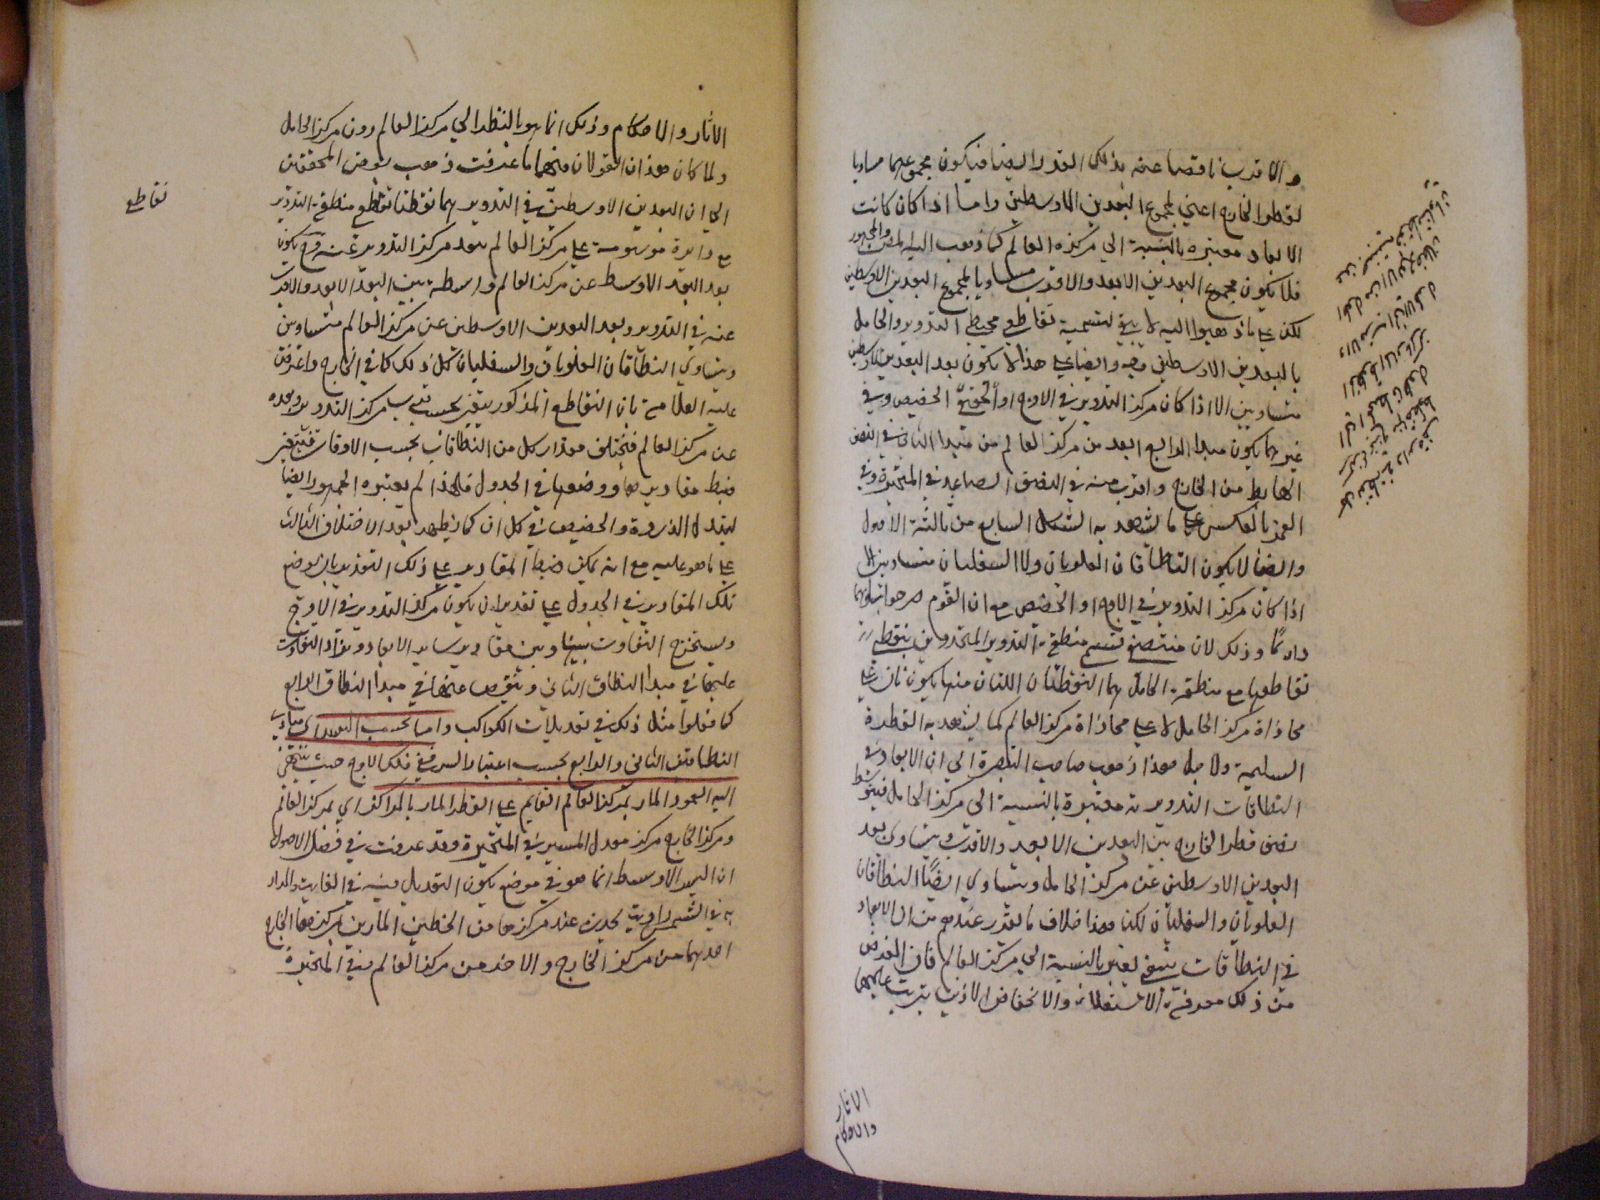 والاقرب ناقصا عنه بذلك القدر ايضا فيكون مجموعهما مساويا
لقطر الخارج اعني لمجموع البعدين الاوسطين واما اذا كان كانت
الابعاد معتبرة بالنسبة الى مركز العالم كما ذهب اليه المص والجمهور
فلا يكون مجموع البعدين الابعد والاقرب مساويا لمجموع البعدين الاوسطين
لكن على ما ذهبوا اليه لا يبقى لتسمية تقاطع محيطي التدوير والحامل
بالبعدين الاوسطين وجه وايضا على هذا لا يكون بعد البعدين الاوسطين
متساويين الا اذا كان مركز التدوير في الاوج او الحضيض وفي
غيرهما يكون مبدا الرابع ابعد من مركز العالم من مبدا الثاني في النصف
الهابط من الخارج واقرب منه في النصف الصاعد في المتحيرة وفي
القمر بالعكس على ما يشهد به الشكل السابع من ثالثة الاصول
وايضا لا يكون النطاقان العلويان ولا السفليان متساويين الا
اذا كان مركز التدوير في الاوج او الحضيض مع ان القوم صرحوا بتساويهما
دائما وذلك لان منتصفي قسمي منطقة التدوير المتحددين بنقطتي
تقاطعها مع منطقة الحامل هما النقطتان اللتان منها يكونان على
محاذاة مركز الحامل لا على محاذاة مركز العالم كما يشهد به الفطرة
السليمة ولاجل هذا ذهب صاحب التبصرة الى ان الابعاد في
النطاقات التدويرية معتبرة بالنسبة الى مركز الحامل فيتوسط
نصف قطر الخارج بين البعدين الابعد والاقرب ويتساوى بعد
البعدين الاوسطين عن مركز الحامل ويتساوى ايضا النطاقان
العلويان والسفليان لكن هذا خلاف ما تقرر عندهم من ان الابعاد
في النطاقات ينبغي يعتبر بالنسبة الى مركز العالم فان الغرض
من ذلك معرفة الاستعلاء والانخفاض الذين يترتب عليهما
الاثار
والاحكام
الاثار والاحكام وذلك انما هو بالنظر الى مركز العالم دون مركز الحامل
ولما كان هذان القولان منهما ما عرفت ذهب بعض المحققين
الى ان البعدين الاوسطين في التدوير هما نقطتا تقاطع منطقة التدوير
مع دايرة مرسومة على مركز العالم ببعد مركز التدوير عنه فح يكون
بعد البعد الاوسط عن مركز العالم واسطة بين البعد الابعد والاقرب
عنه في التدوير وبعد البعدين الاوسطين عن مركز العالم متساويين
ويتساوى النطاقان العلويان والسفليان كل ذلك كما في الخارج واعترض
عليه العلامة بان التقاطع المذكور يتغير بحسب قرب مركز التدوير وبعده
عن مركز العالم فيختلف مقدار كل من النطاقات بحسب الاوقات فيتغير
ضبط مقاديرها ووضعها في الجدول فلهذا لم يعتبره الجمهور ايضا
لتبدل الذروة والحضيض في كل ان كما يظهر بعد الاختلاف الثالث
على ما هو عليه مع انه يمكن ضبط المقادير على ذلك التقدير بان يوضع
تلك المقادير في الجدول على تقدير ان يكون مركز التدوير في الاوج
ويستخرج التفاوت بينها وبين مقادير ساير الابعاد ويزاد التفاوت
عليها في مبدا النطاق الثاني وينقص عنها في مبدا النطاق الرابع
كما فعلوا مثل ذلك في تعديلات الكواكب واما بحسب المسير اي مبادي
النطاقين الثاني والرابع بحسب اعتبار المسير ففي فلك الاوج حيث ينتهي
اليه العمود المار بمركز العالم القايم على القطر المار بالمراكز اي بمركز العالم
ومركز الخارج مركز معدل المسير في المتحيرة وقد عرفت في فصل الاصول
ان البعد الاوسط انما هو في موضع يكون التعديل فيه في الغاية والمراد
به في الشمس زاوية تحدث عند مركزها من الخطين المارين بمركزها الخارج
احدهما من مركز الخارج والاخر من مركز العالم وفي المتحيرة
تقاطع